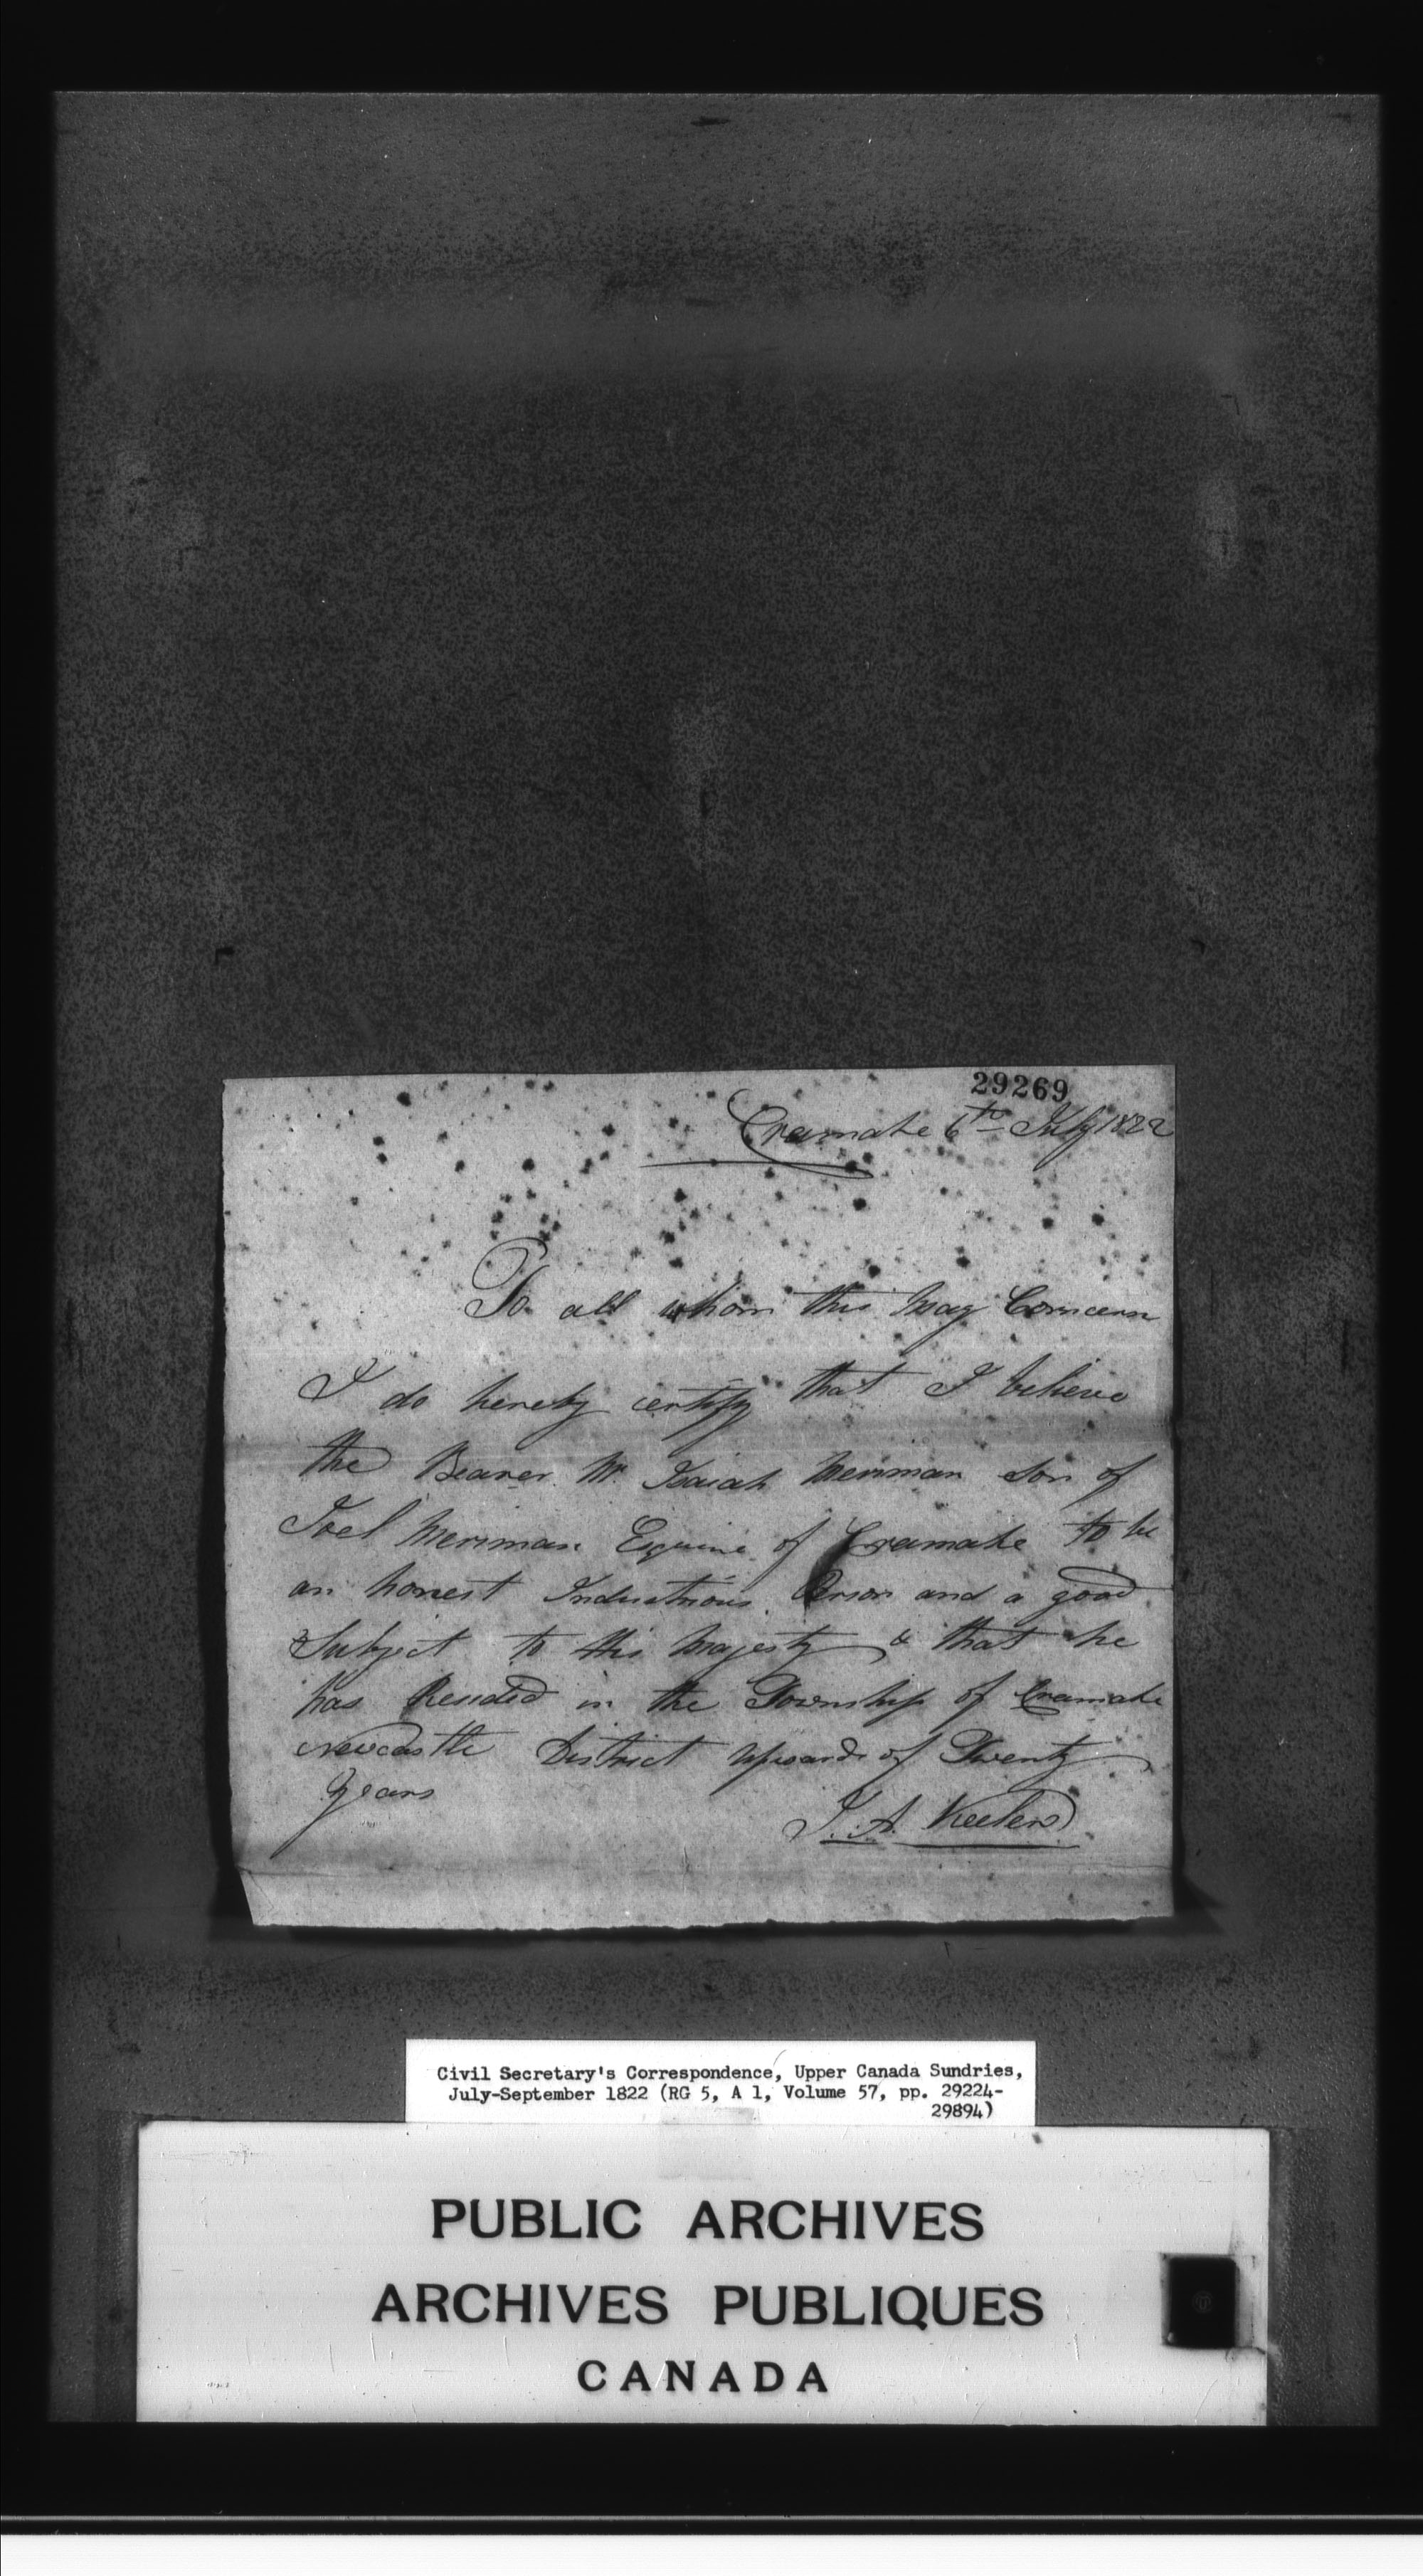 29269
Cramahe 6th July 1822
To all whom this may Concern
I do hereby certify that I believe
the Bearer Mr. Isaiah Merriman Son of
Joel Merriman Esquire of Cramahe to be
an honest Industrious Person and a good
Subject to His Majesty & that he
has Resided in the Township of Cramahe
Newcastle District upwards of Twenty
Years
J. A. Keeler
Civil Secretary's Correspondence, Upper Canada Sundries,
July-September 1822 (RG 5, A 1, Volume 57, pp. 29224-
29894)
PUBLIC ARCHIVES
ARCHIVES PUBLIQUES
CANADA